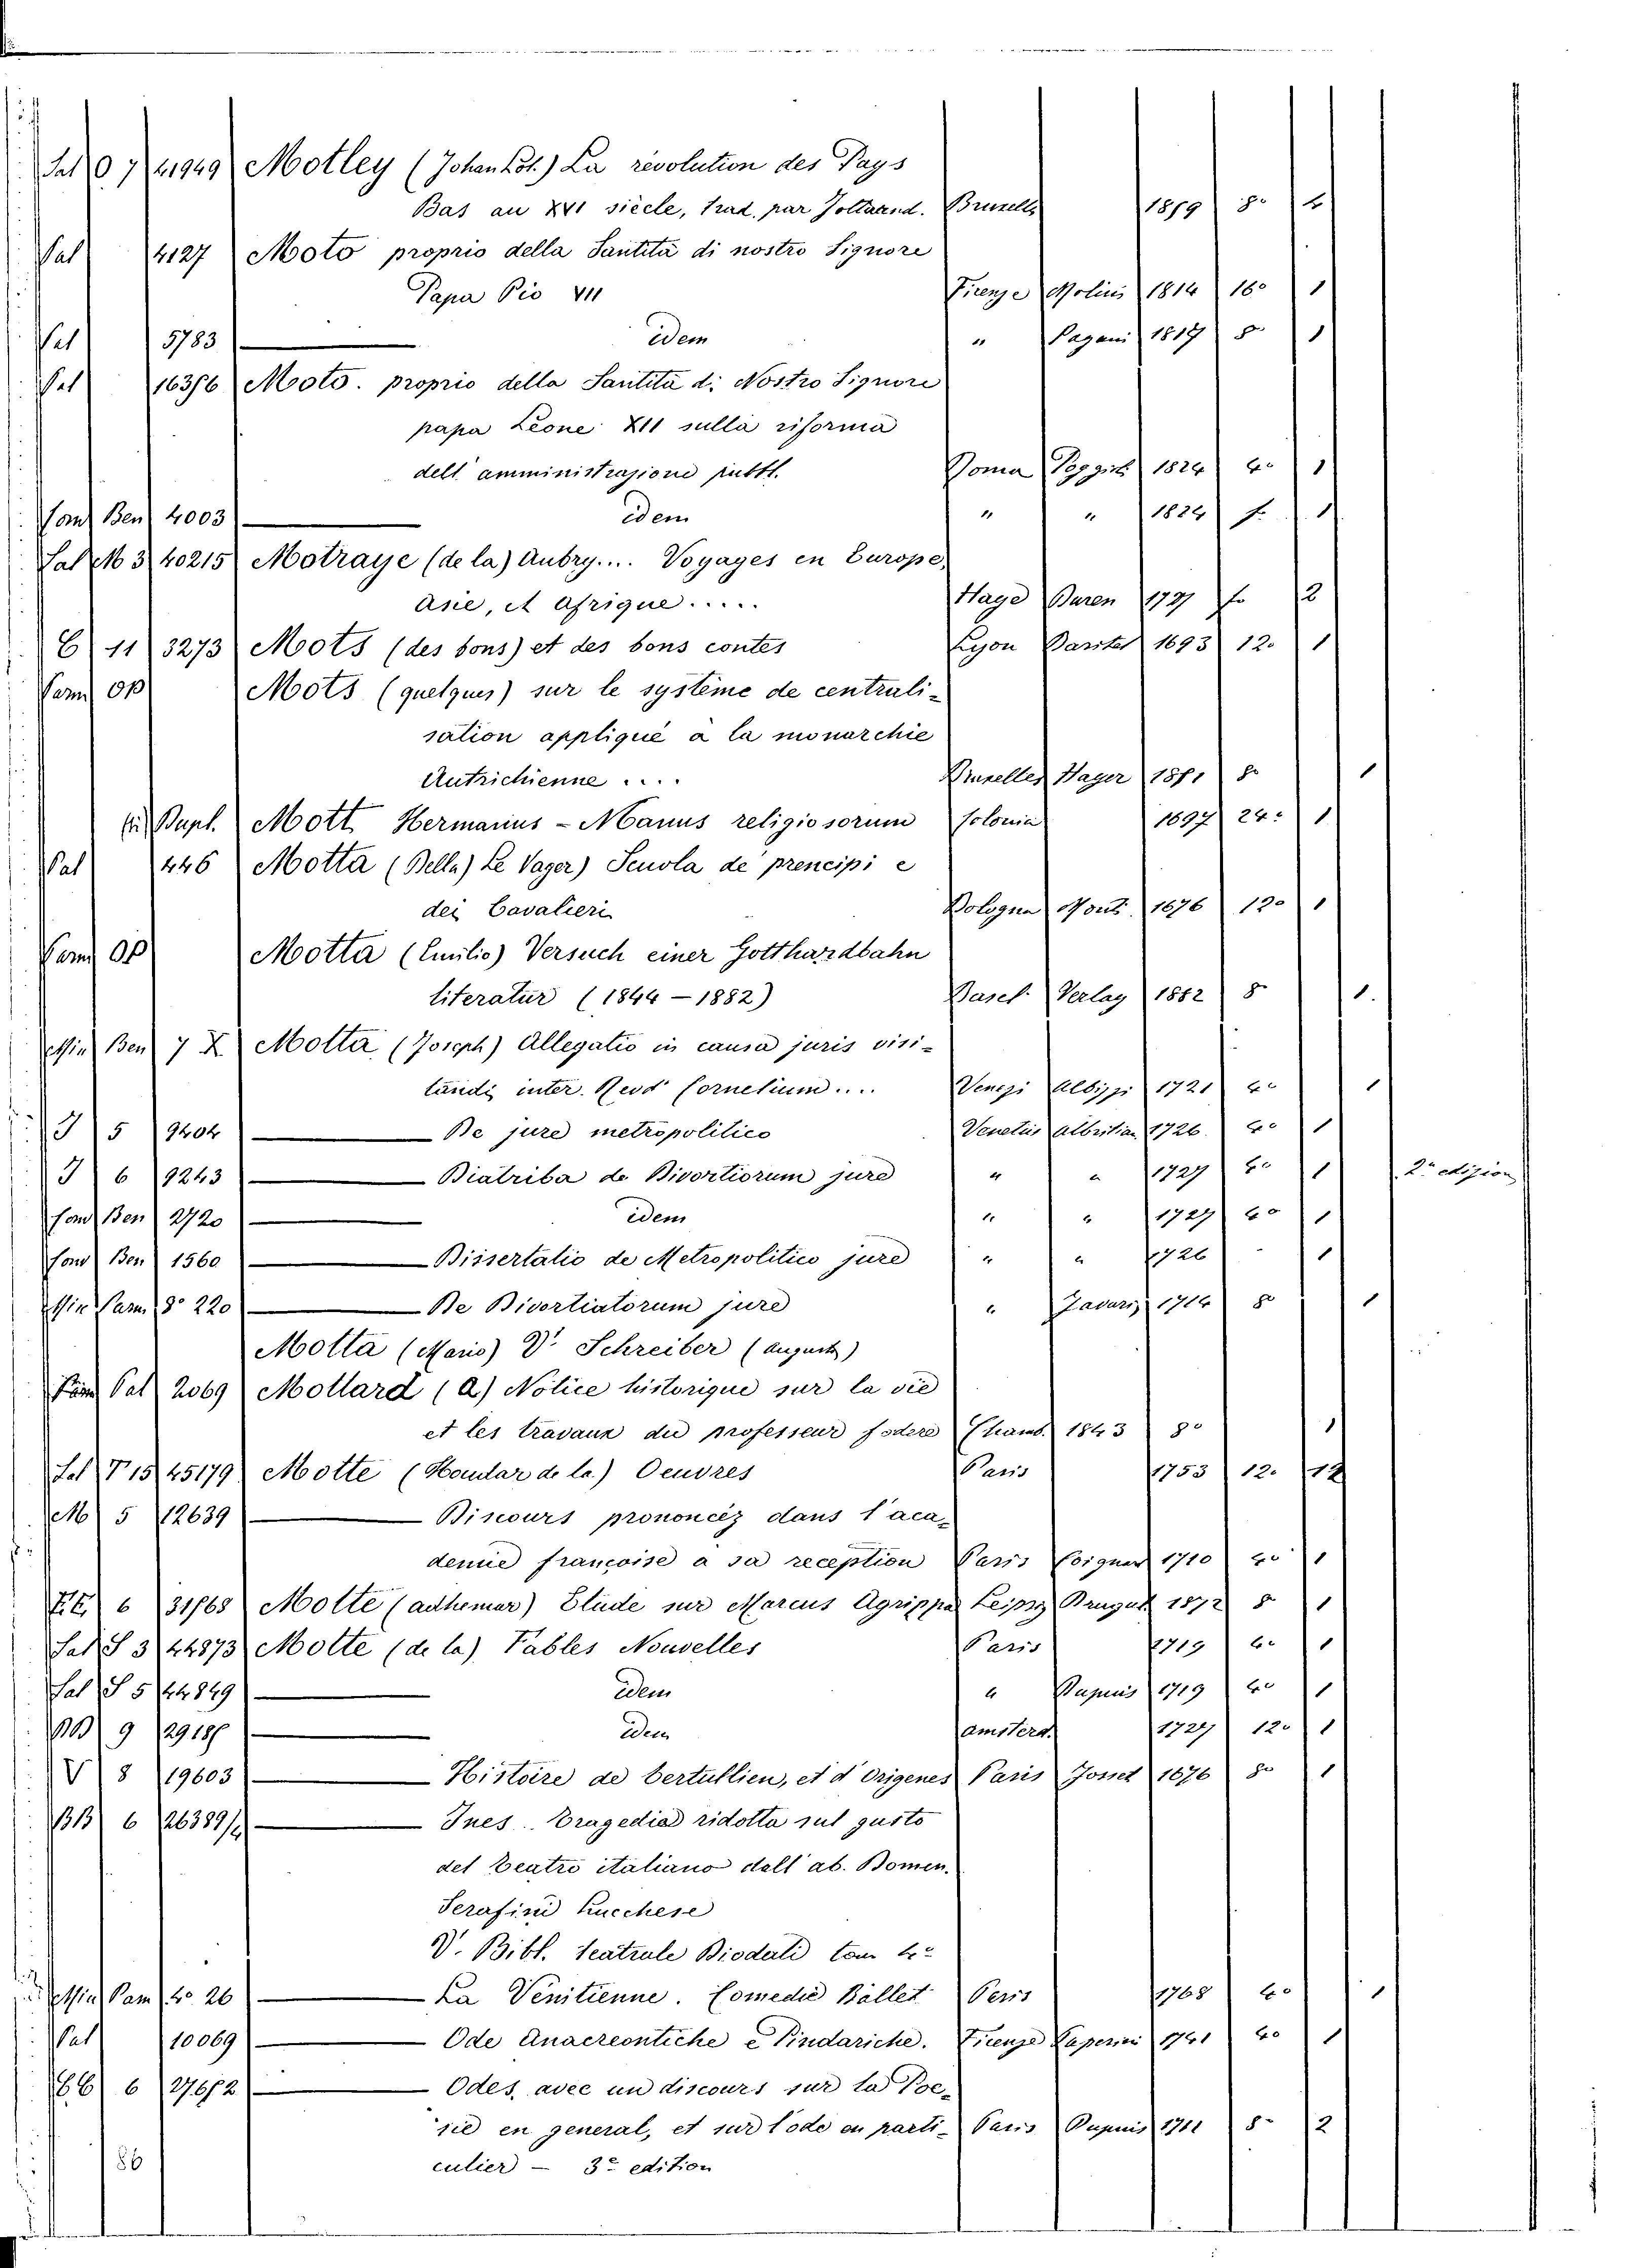 Sal O 7 41949 Motley (Johan Lot.) La révolution des Pays
Bas au XVI siécle, trad. par Jottrand. Bruxelles 1859 8° 4
Sal 4127 Moto proprio della Santità di nostro Signore
Papa Pio VII Firenze Molini 1814 16° 1
Sal 5783 idem " Pagani 1817 8° 1
Sal 16356 Moto. proprio della Santità di Nostro Signore
papa Leone XII sulla riforma
dell' amministrazione pubbl. Roma Poggioli 1824 4° 1
fond Ben 4003 idem " " 1824 f. 1
Sal M 3 40215 Motraye (de la) Aubry.... Voyages en Europe,
Asie, et Afrique..... Haye 1727 f° 2
E 11 3273 Mots (des bons) et des bons contes Lyon 1693 12° 1
Parm OP Mots (quelques) sur le système de centrali-
sation appliqué à la monarchie
Autrichienne .... Bruxelles Hayer 1851 8° 1
Bapt. Mott Hermanus - Manus religiosorum Colonia 1697 24° 1
Pal 446 Motta (Della) Le Vager) Scuola de prencipi e
dei Cavalieri Bologna Monti 1676 12° 1
Parm OP Motta (Emilio) Versuch einer Gotthardbahn
literatur (1844 - 1882) Basel Verlag 1882 8° 1.
Min Ben 7 X Motta (Joseph) Allegatio in causa juris visi-
tandi inter. Revd Cornelium.... Venezi Albizzi 1721 4° 1
J 5 9404 De jure metropolitico Venetiis 1726 4° 1
J 6 9243 Diatriba de Divortiorum jure " " 1727 4° 1 2a edizion
fond Ben 2720 idem " " 1727 4° 1
fond Ben 1560 Dissertatio de Metropolitico jure " " 1726 - 1
Min Parm 8° 220 De Divortiatorum jure " 1714 8° 1
Motta (Mario) V. Schreiber (August)
Pal 2069 Mottard (A) Notice historique sur la vie
et les travaux du professeur fodere Chamb. 1843 8° 1
Sal T 15 45179 Motte (Houdar de la) Oeuvres Paris 1753 12° 12
M 5 12639 Discours prononcéz dans l'aca-
demie françoise a sa reception Paris Coignard 1710 4° 1
6 31768 Motte (adhemar) Etude sur Marcus Agrippa Leipzig 1872 8 1
Sal S 3 44873 Motte (de la) Fables Nouvelles Paris 1719 4° 1
Sal S 5 44849 idem " Dupuis 1719 4° 1
9 idem amsterd. 1727 12° 1
V 8 19603 Histoire de tertullien, et d'Origenes Paris Josset 1676 8° 1
BB 6 26389/4 Ines.. tragedia ridotta sul gusto
del teatro italiano dall'ab. Domen.
Serafini Lucchese
V. Bibl. teatrale Diodati tom 4°
Min Pam 4° 26 La Venitienne. Comedie Ballet Paris 1768 4° 1
Pal 10069 Ode Anacreontiche e Pindariche. Firenze Paperini 1741 4° 1
6 27652 Odes, avec un discours sur la Poe-
sie en general, et sur l'ode en parti- Paris Dupuis 1711 8° 2
86 culier - 3e edition